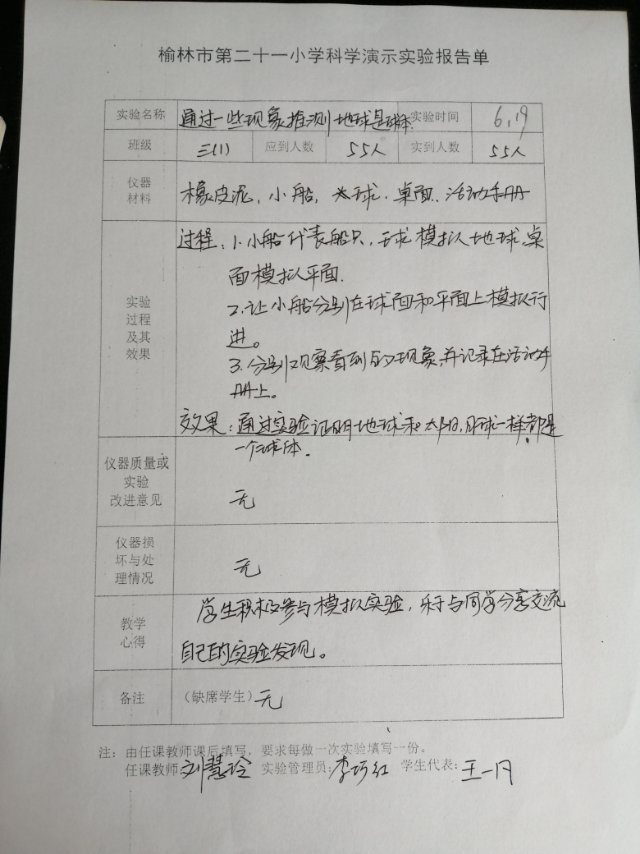 榆林市第二十一小学科学演示实验报告单
实验名称 通过一些现象推测地球是球体 实验时间 6.19
班级 三(1) 应到人数 55人 实到人数 55人
仪器
材料
橡皮泥、小船、球、桌面、活动手册
实验
过程
及其
效果
过程:1.小船代表船只,球模拟地球,桌
面模拟平面.
2.让小船分别在球面和平面上模拟行
进。
3.分别观察看到的现象,并记录在活动手
册上。
效果:通过实验证明地球和太阳、月球一样都是
一个球体.
仪器质量或
实验
改进意见
无
仪器损
坏与处
理情况
无
教学
心得
学生积极参与模拟实验,乐于与同学分享交流
自己的实验发现。
备注 (缺席学生) 无
注:由任课教师课后填写,要求每做一次实验填写一份。
任课教师:刘慧玲 实验管理员:李巧红 学生代表:王一